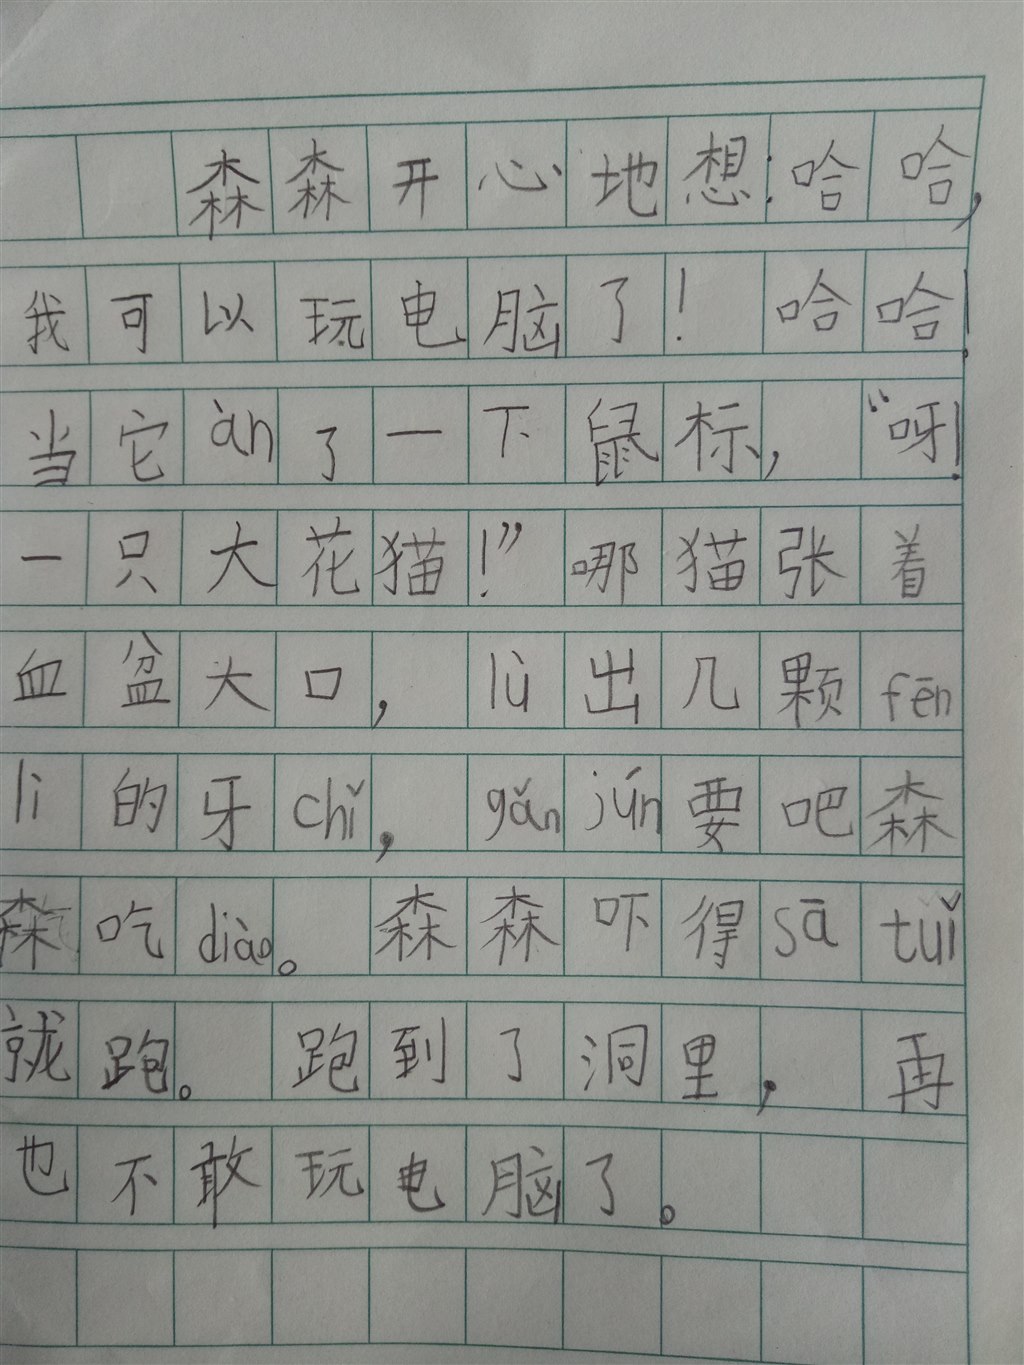 森森开心地想:哈哈,
我可以玩电脑了!哈哈!
当它àn了一下鼠标,“呀!
一只大花猫!”哪猫张着
血盆大口,lù出几颗fēn
lì的牙chǐ,gǎn jún要吧森
森吃diào。森森吓得sā tuǐ
就跑。跑到了洞里,再
也不敢玩电脑了。